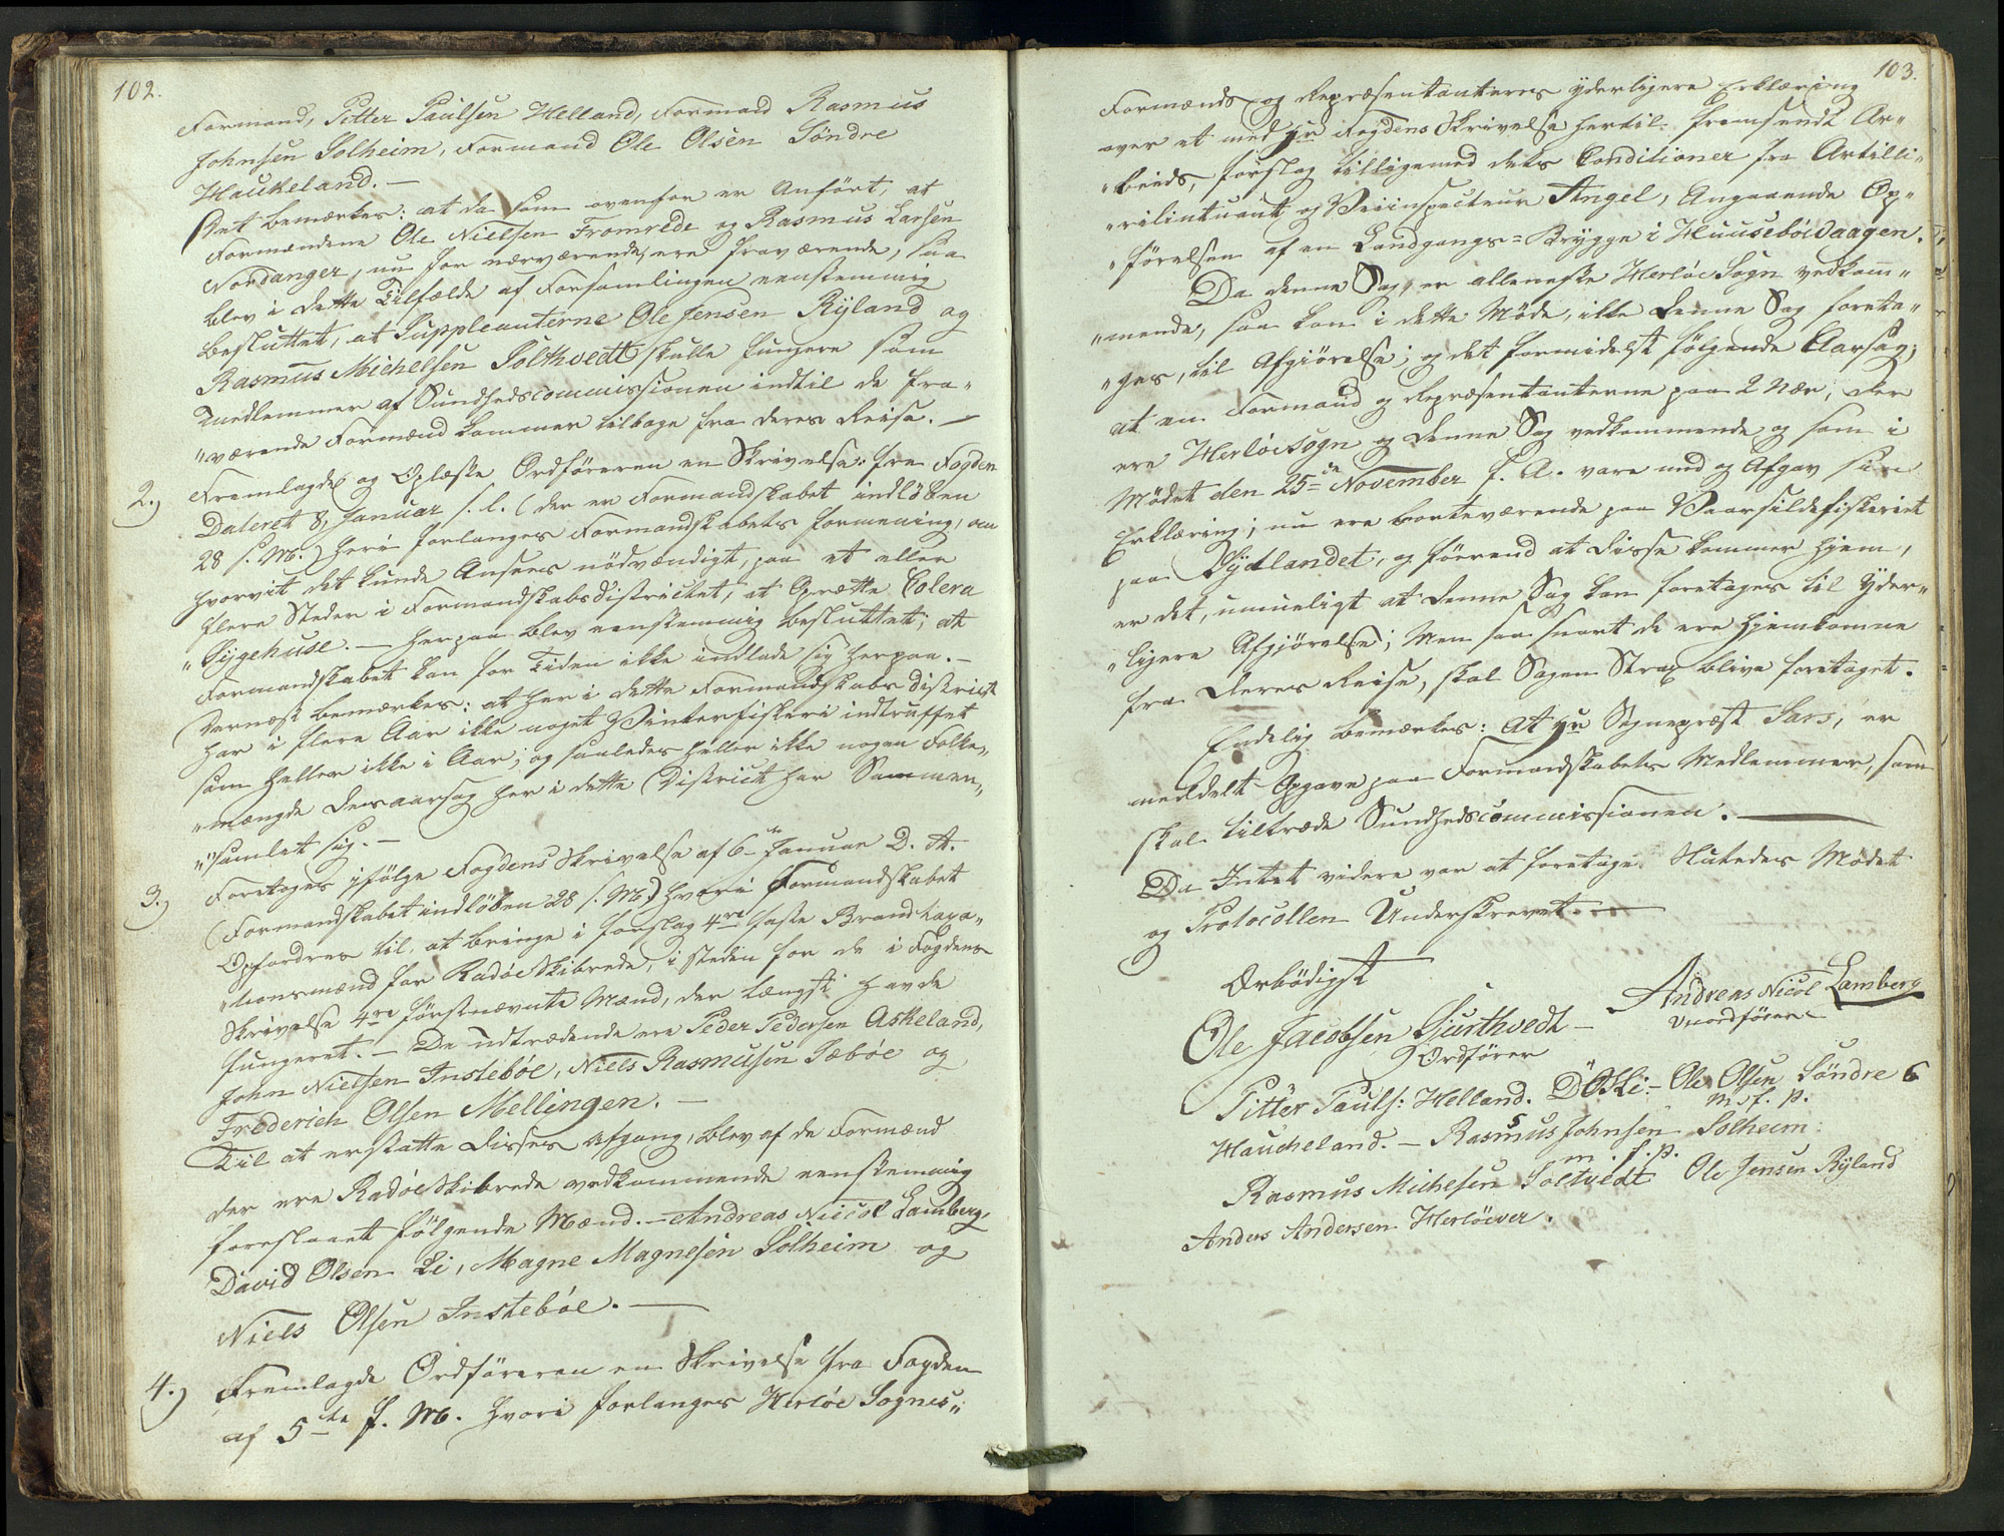 102.
Formand, Petter Paulsen Helland, Formand Rasmus
Johnsen Solheim, Formand Ole Olsen Söndre
Haukeland. —
Det bemærkes: at da som ovenfor er Anfört, at
Formændene Ole Nielsen Fromrede og Rasmus Larsen
Nordanger, nu for nærværende, ere fraværende, saa
blev i dette Tilfælde af Forsamlingen eenstemmig
besluttet, at Suppleanterne Ole Jensen Ryland og
Rasmus Michelsen Solthvedt skulle fungere som
medlemmer af Sundhedscommissionen indtil de fra„
„værende Formænd kommer tilbage fra deres Reise. —
2.) Fremlagde og Oplæste Ordföreren en Skrivelse fra Fogden
Dateret 8, Januar s. l. (der er Formandskabet indlöben
28 s. M.) hvori forlanges Formandskabets formening, om
hvorvit det kunde Ansees nödvændigt, paa et eller
flere Steder i Formandskabsdistrictet, at Oprætte Colera
„Sygehuse. — herpaa blev eenstemmig besluttet; at
Formandskabet kan for Tiden ikke indlade sig herpaa. —
Dernæst bemærkes: at her i dette Formandskabs District
har i flere Aar ikke noget Vinterfiskeri indtruffet
som heller ikke i Aar; og saaledes heller ikke nogen Folke„
„mængde Desaarsag her i dette District har Sammen„
„samlet sig. —
3.) Foretoges ifölge Fogdens Skrivelse af 6te Januar D. A.
(Formandskabet indlöben 28 s. M.) hvori Formandskabet
Opfordres til at bringe i forslag 4re faste Brandtaxa„
„tionsmænd for Radöe Skibrede, i steden for de i Fogdens
Skrivelse 4re förstnævnte Mænd, der længst havde
fungeret. — De udtrædende ere Peder Pedersen Askeland,
John Nielsen Insteböe, Niels Rasmussen Sæböe og
Frederich Olsen Mellingen. —
Til at erstatte disses Afgang, blev af de Formænd
der ere Radöe Skibrede vedkommende eenstemmig
foreslaaet fölgende Mænd. — Andreas Nicol Lamberg,
David Olsen Li, Magne Magnesen Solheim og
Niels Olsen Insteböe. —
4.) Fremlagde Ordföreren en Skrivelse fra Fogden
af 5te f. M. hvori forlanges Herlöe Sognes„
103.
Formænds og Repræsentanteres yderligere Erklæring
over et med hr Fogdens Skrivelse hertil fremsendt Ar„
„beids, forslag tilligemed dets Conditioner fra Artille„
„rilieutnant og Veiinspecteur Angel, Angaaende Op„
„förelsen af en Landgangs=Brygge i Huuseböevaagen.
Da denne Sag, er alleneste Herlöe Sogn vedkom„
„mende, saa kan i dette Möde, ikke denne Sag foreta„
„ges, til Afgiörelse; og det formedelst fölgende Aarsag;
at en Formand og Repræsentanterne paa 2 Nær, der
ere Herlöe sogn og denne Sag vedkommende og som i
Mödet den 25de November f. A. vare med og Afgav sin
Erklæring; nu ere borteværende paa Vaarsildefiskeriet
paa Sydlandet, og förend at disse kommer hjem,
er det, umueligt at denne Sag kan foretages til Yder„
„ligere Afgjörelse; Men saa snart de ere hjemkomne
fra deres Reise, skal Sagen Strax blive foretaget.
Endelig bemærkes: At hr Sognepræst Sars, er
meddelt Opgave paa Formandskabets Medlemmer, som
skal tiltræde Sundhedscommissionen. —
Da Intet videre var at foretage Sluttedes Mödet
og Protocollen Underskrevet. —
Ærbödigst
Ole Jacobsen Gjurthvedt — Andreas Nicol Lamberg
Ordförer Viceordförer
Pitter Pauls: Helland. DOSLi. — Ole Olsen Söndre
m. f. p.
Haucheland. — Rasmus Johnsen Solheim
m. f. p.
Rasmus Michelsen Soltvedt Ole Jensen Ryland
Anders Andersen Herlöever.